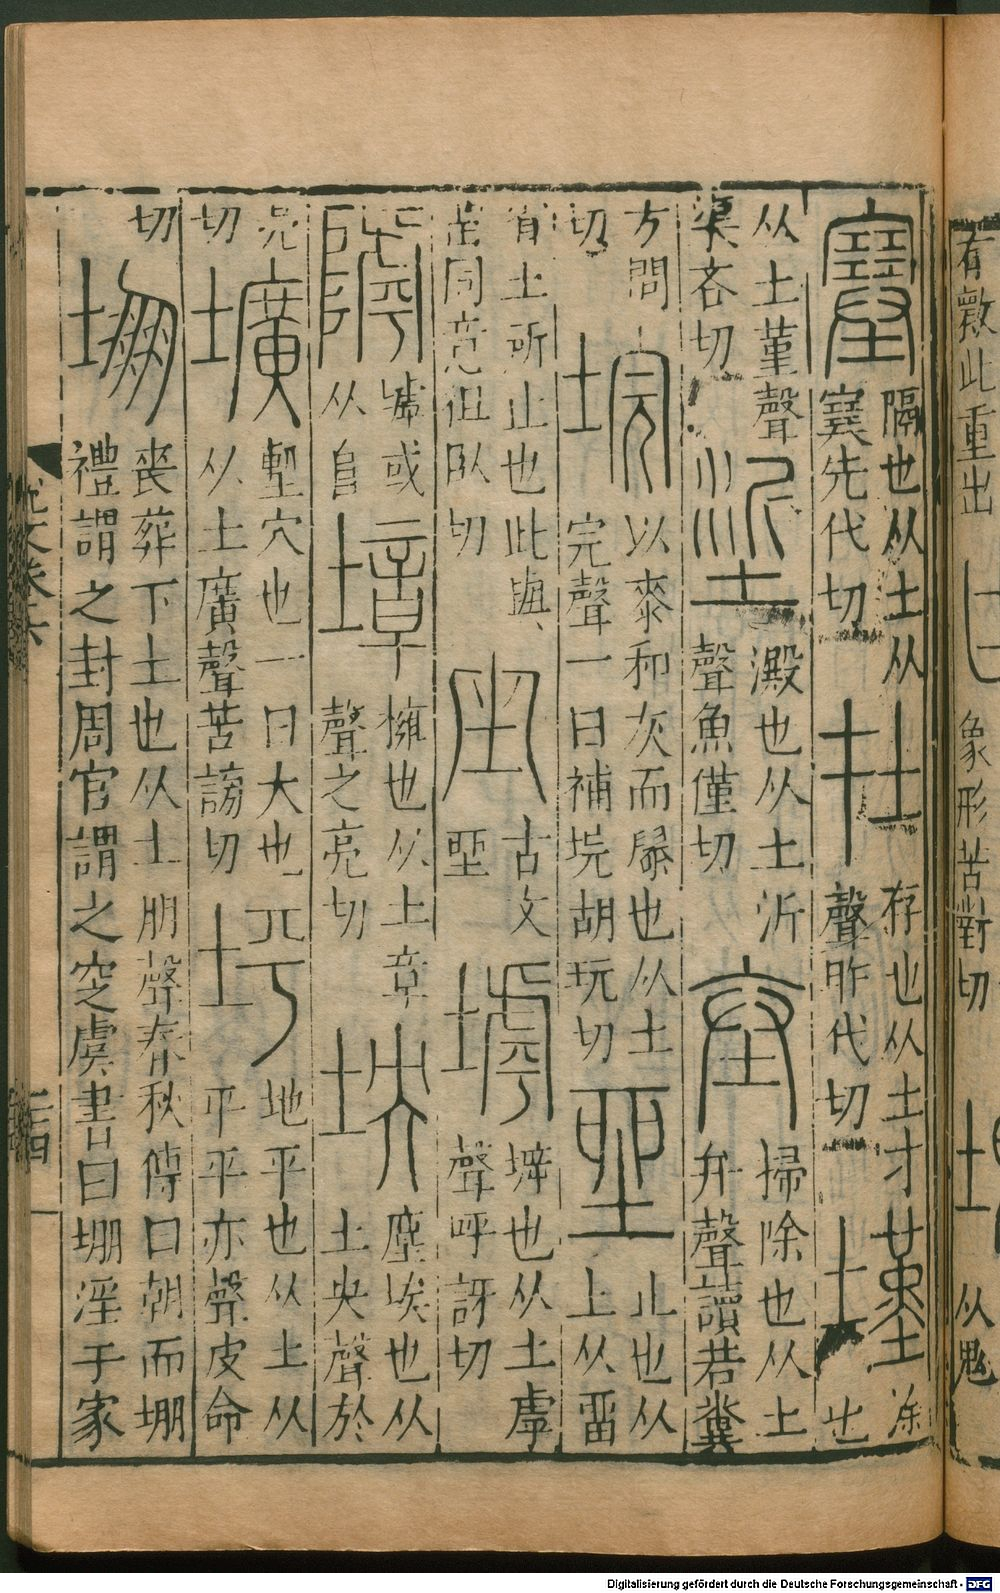 有敦此重出
凵
象形苦對切
从鬼
𡫳隔也从土从𡨄先代切 在存也从土才聲昨代切 墐涂也
从土堇聲渠吝切 垽澱也从土沂聲魚僅切 坌掃除也从土弁聲讀若糞
方問切 垸以桼和灰而䰍也从土完聲一曰補垸胡玩切 𡋲止也从土从畱
省土所止也此與畱同意徂臥切 坐古文坐 㙤𡍩也从土虖聲呼訝切
𨼭㙤或从𨸏 墇擁也从土章聲之亮切 坱塵埃也从土央聲於
亮切 壙塹穴也一曰大也从土廣聲苦謗切 坪地平也从土从平平亦聲皮命
切 堋喪葬下土也从土朋聲春秋傳曰朝而堋禮謂之封周官謂之窆虞書曰堋淫于家
Digitalisierung gefördert durch die Deutsche Forschungsgemeinschaft - DFG